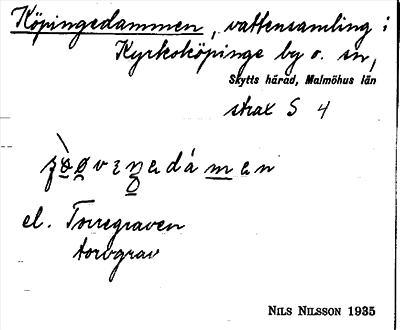 Köpingedammen, vattensamling i
Kyrkoköpinge by o. sn,
Skytts härad, Malmöhus län
strax S 4
el. Torvegraven
torvgrav
NILS NILSSON 1935